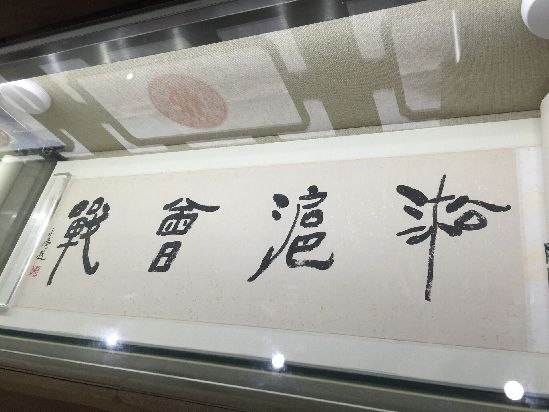 淞滬會戰